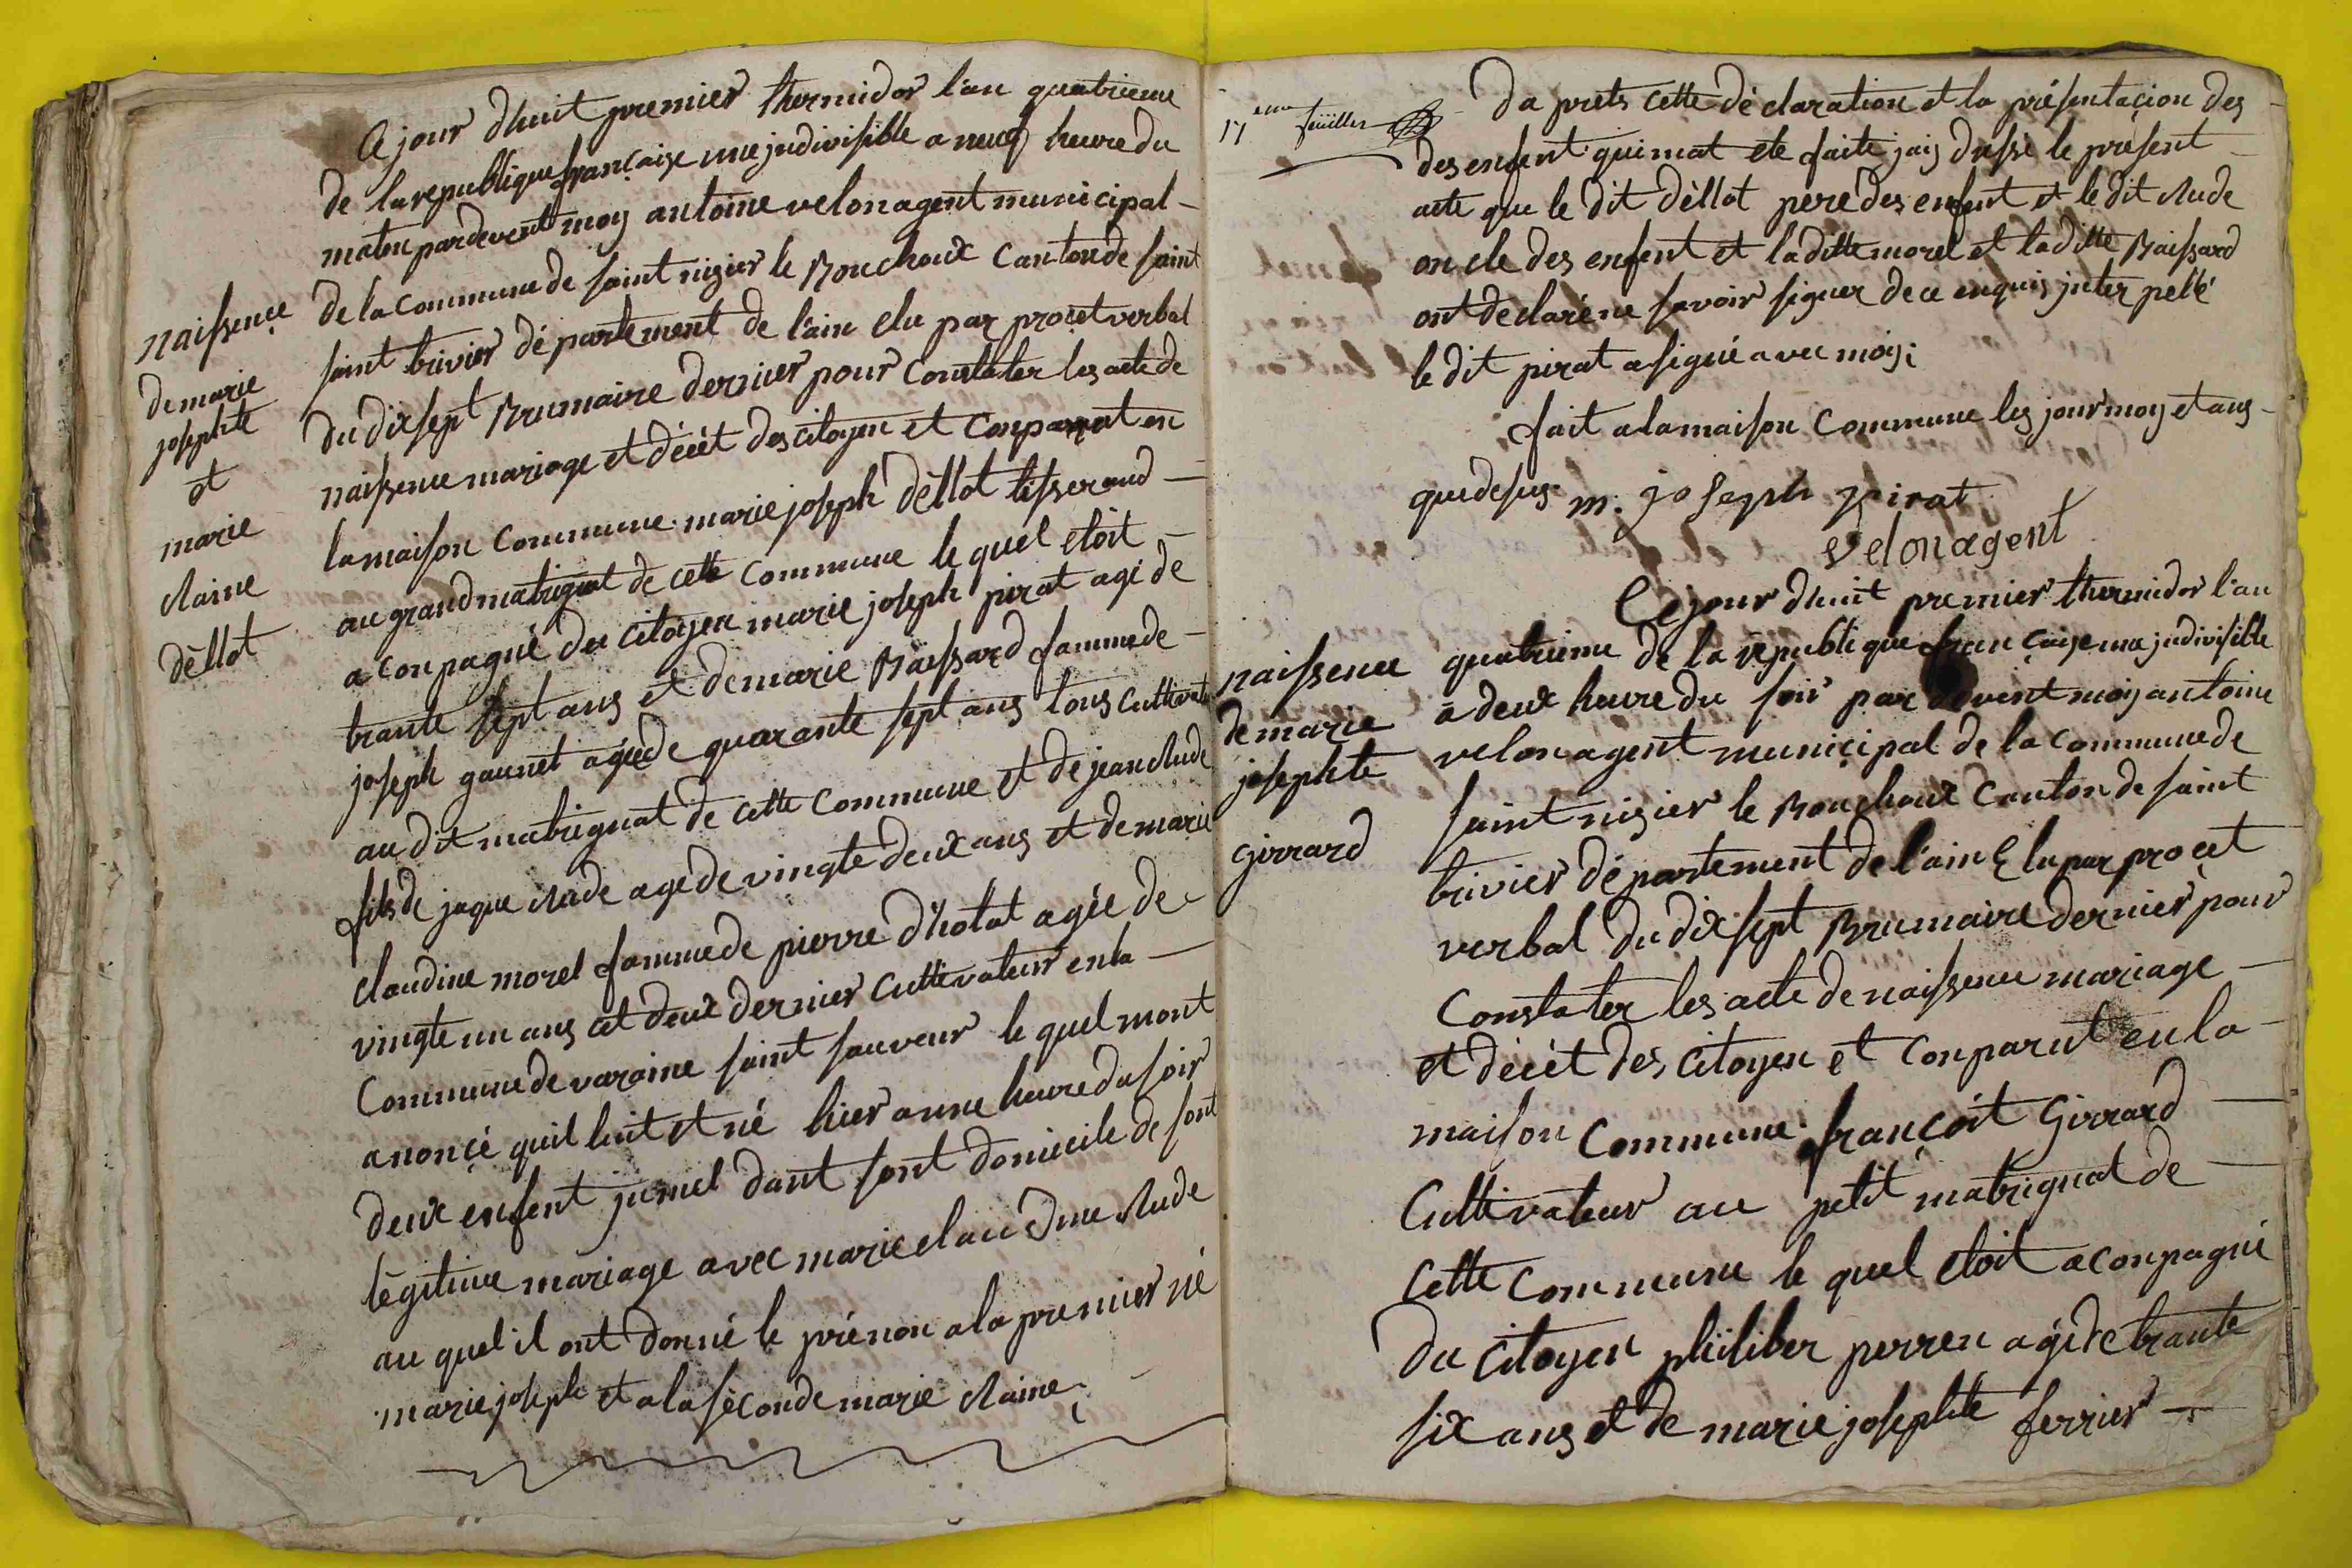 Ce jour dhuit premier thermidor l'an quatrieme
de la republique française une jndivisible a neuf heure du
matin pardevent moy antoine velon agent municipal
de la Commune de saint nizier le Bouchoux Canton de saint
saint trivier département de l'ain elu par procet verbal
du dixsept Brumaire dernier pour Constater les acte de
naissence mariage et décèt des citoyen et Conparut en
la maison Commune marie joseph dèllot tisserand
au grand matrignat de cette Commune le quel etoit
a conpagné du citoyen marie joseph pirat agé de
trante sept ans et de marie Baissard famme de
joseph gaunet agée de quarante sept ans tous cultivat
au dit matrignat de cette Commune et de jean clude
fils de jaque clude age de vingte deux ans et de marie
claudine morel famme de pierre d'hotat agée de
vingte un ans cet deux dernier cultivateur en la
Commune de varaine saint sauveur le quel mont
anoncé quil luit et né hier a une heure du soir
deux enfent jumel dant sont domicile de sont
légitime mariage avec marie claudine clude
au quel il ont donné le prénon a la premier né
marie joseph et a la séconde marie claine
naissence
de marie
josephte
et
marie
claine
dèllot
17 eme feüiller
Da prèts cette déclaration et la présentaçion des
des enfent qui mat ete faite jais dressé le present
acte que le dit dèllot pere des enfent et le dit clude
oncle des enfent et la ditte morel et la ditte Baissard
ont declaré ne savoir signer de ce enquis jnter pellé
le dit pirat a signé avec moy;
fait a la maison Commune les jour moy et ans
que desus m: joseph pirat
velon agent
Ce jour dhuit premier thermidor l'an
quatrieme de la république française une jndivisible
a deux heure du soir par devent moy antoine
velon agent municipal de la Commune de
saint nizier le Bouchoux Canton de saint
trivier département de l'ain Elu par procet
verbal du dixsept Brumaire dernier pour
Constater les acte de naissence mariage
et décèt des citoyen et Conparut en la
maison Commune françoit Girrard
Cultivateur au petit matrignat de
Cette Commune le quel etoit aconpagné
du citoyen philiber perren agé de trante
six ans et de marie josephte ferrier
naissence
de marie
josephte
girrard